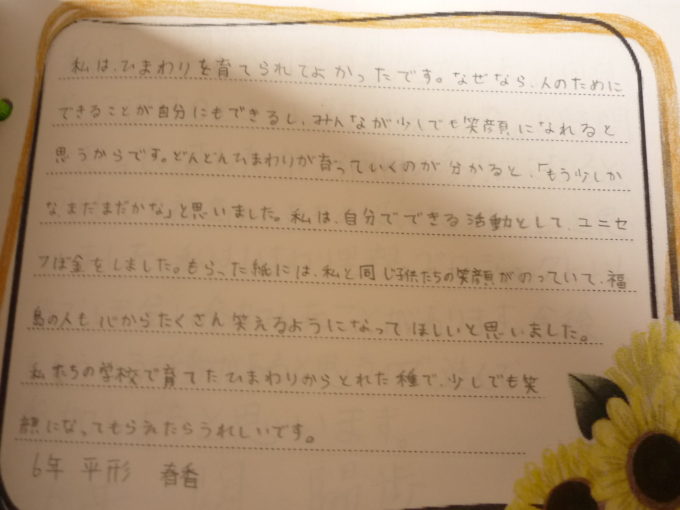 私は、ひまわりを育てられてよかったです。なぜなら、人のために
できることが自分にもできるし、みんなが少しでも笑顔になれると
思うからです。どんどんひまわりが育っていくのが分かると、「もう少しか
な、まだまだかな」と思いました。私は、自分でできる活動として、ユニセ
フぼ金をしました。もらった紙には、私と同じ子供たちの笑顔がのっていて、福
島の人も心からたくさん笑えるようになってほしいと思いました。
私たちの学校で育てたひまわりからとれた種で、少しでも笑
顔になってもらえたらうれしいです。
6年 平形 春香